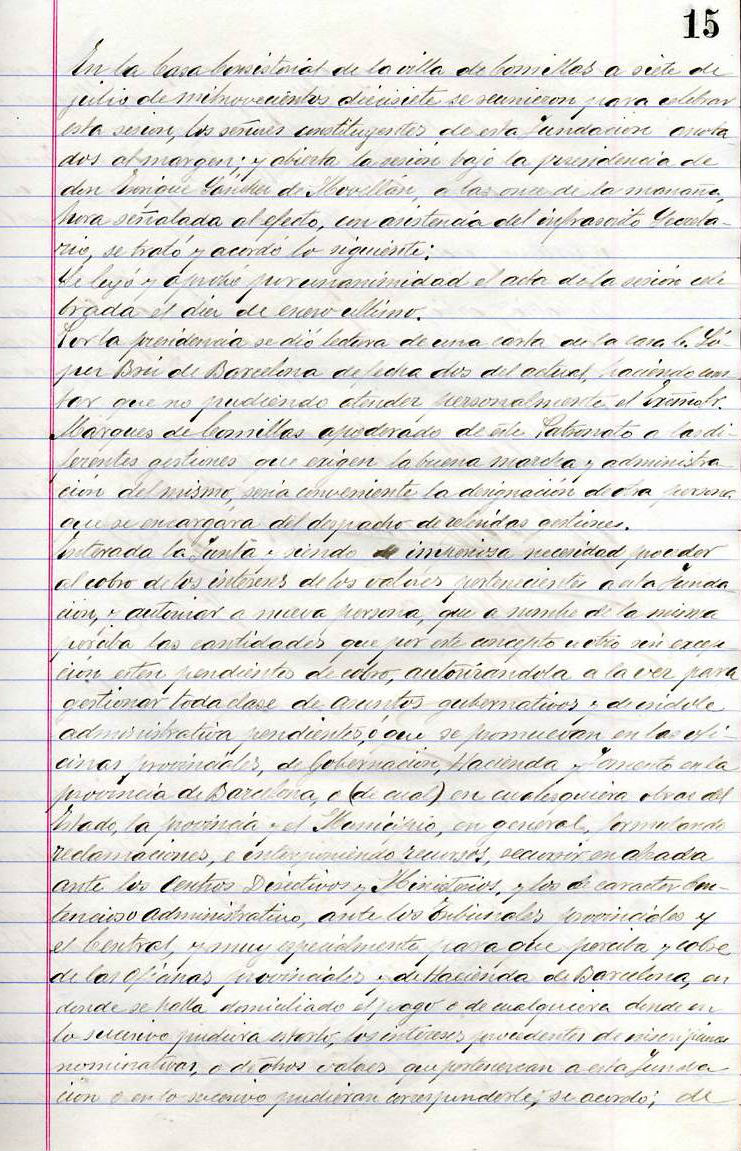 15
En la Casa Consistorial de la villa de Comillas a siete de
julio de mil novecientos diecisiete se reunieron para celebrar
esta sesion, los señores constituyentes de esta Fundación anota-
dos al margen; y abierta la sesión bajo la presidencia de
don Enrique Sánchez de Movellán, a las once de la mañana,
hora señalada al efecto, con asistencia del infrascrito Secreta-
rio, se trató y acordó lo siguiente:
Se leyó y aprobó por unanimidad el acta de la sesión cele
brada el diez de enero último.
Por la presidencia se dió lectura de una carta de la casa L. Ló-
pez Brú de Barcelona de fecha dos del actual, haciendo cons
tar que no pudiendo atender personalmente el Excmo Sr.
Marques de Comillas apoderado de este Patronato a las di-
ferentes gestiones que exigen la buena marcha y administra
ción del mismo, seria conveniente la designación de otra persona
que se encargara del despacho de referidas gestiones.
Enterada la Junta y siendo de imperiosa necesidad proceder
al cobro de los intereses de los valores pertenecientes a esta Funda
ción, y autorizar a nueva persona, que a nombre de la misma
perciba las cantidades que por este concepto u otro sin excep
ción esten pendientes de cobro, autorizándola a la vez para
gestionar toda clase de asuntos gubernativos y de indole
administrativa pendientes, ó que se promuevan en las ofi-
cinas provinciales, de Gobernación, Hacienda y Fomento en la
provincia de Barcelona, o (de cual) en cualesquiera otras del
Estado, la provincia y el Municipio, en general, formulando
reclamaciones, e interponiendo recursos, recurrir en alzada
ante los Centros Directivos y Ministerios, y los de caracter Con-
tencioso administrativo, ante los Tribunales provinciales y
el Central, y muy especialmente para que perciba y cobre
de las Oficinas provinciales y de Hacienda de Barcelona, en
donde se halla domiciliado el pago o de cualquiera donde en
lo sucesivo pudiera estarlo, los intereses procedentes de inscripciones
nominativas, o de otros valores que pertenezcan a esta Funda
ción o en lo sucesivo pudieran corresponderle; se acordó; de